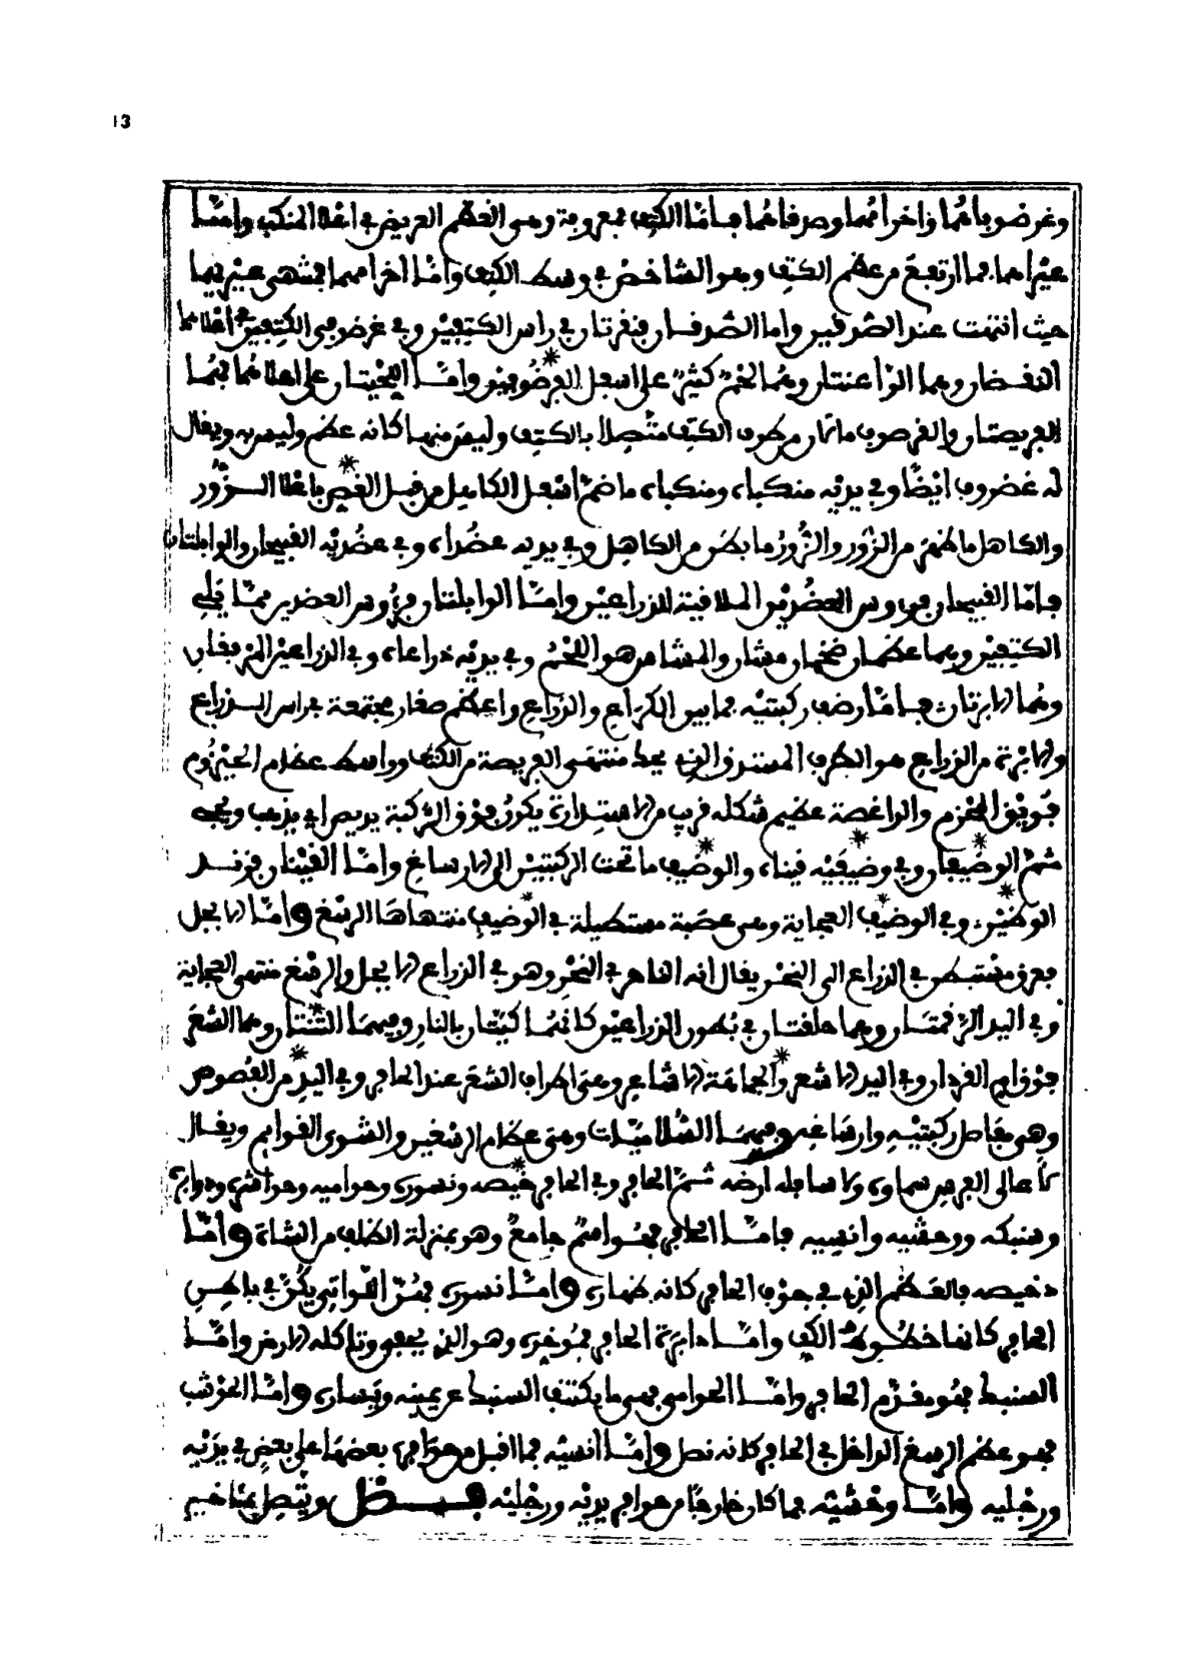 13
وغرضوفاهما واخرامهما وصدفاهما فاما الكتف فمعروفة وهي العظم العريض في اعلا المنكب واما
عيراهما فما ارتفع من عظم الكتف وهو الشاخص في وسط الكتف واما اخرامهما فمنتهى عيريهما
حيث انتهت عند الصدفين واما الصدفان فنقرتان في راس الكتفين وفي غرضوفي الكتفين في اعلاهما
النغضان وهما الزاعنتان وهما لحم كثير على اسفل الغرضوفين واما اللحيتان على اعلاهما فهما
الفريصتان والغرضوف ما كان من طرف الكتف متصلا بالكتف وليس منها كانه عظم وليس به ويقال
له غضروف ايضا وفي يديه منكباه ومنكباه ما ضم اسفل الكاهل من قبل القص باعلا الزور
والكاهل ما ظهر من الزور والزور ما بطن من الكاهل وفي يديه عضداه وفي عضديه القبيحان والوابلتان
فاما القبيحان فرءوس العضدين الملاقية للذراعين واما الوابلتان فرءوس العضدين مما يلي
الكتفين وهما عظمان ضخمان مشان والمشاش هو اللحم وفي يديه ذراعاه وفي الذراعين المرفقان
وهما الابرتان فاما رضف ركبتيه فما بين الكراع والذراع واعظم صغار مجتمعة في راس الذراع
والابرة من الذراع هو الطرف المستدق الذي يحاذ منتهى الفريصة من الكتف وواسط عظام الحيزوم
فويق المحزم والداغصة عظيم شكله قريب من الاستدارة يكون فوق الركبة يديص اي يذهب ويجي
ثم الوظيفان وفي وظيفيه قيناه والوظيف ما تحت الركبتين الى الارساغ واما القينان فزند
الوظيفين وفي الوظيف العجاية وهي عصبة مستطيلة في الوظيف منتهاها الرسغ واما الابجل
فعرق مستبطن في الذراع الى النحر يقال انه الناهر في النحر وهو في الذراع الابجل والرسغ منتهى العجاية
وفي اليد الرقمتان وهما حلقتان في بطون الذراعين كانهما كيتان بالنار وفيهما الثنتان وهما الشعر
فوق ام القردان وفي اليد الاشعر والجمامة الاشاعر وهي اطراف الشعر عند الحافر وفي اليد من الفصوص
وهي مفاصل ركبتيه وارساغه وفيهما السلاميات وهي عظام الرسغين والشوى القوايم ويقال
لاعالي الفرس سماوه ولاسافله ارضه ثم الحافر وفي الحافر دخيصه ونسوره وحواميه وحوافره ودوابره
وسنبكه ووحشيه وانسيه فاما الحافر فهو اسم جامع وهو بمنزلة الظلف من الشاة واما
دخيصه فالعظم الذي في جوف الحافر كانه ظهاره واما نسوره فهن اللواتي يكن في باطن
الحافر كانها خطوط الكف واما دابرة الحافر فموخره وهو الذي يحفو وتاكله الارض واما
السنبك فهو مقدم الحافر واما الحوامي فهي ما يكتنف السنبك عن يمينه ويساره واما الحوشب
فهو عظم الرسغ الداخل في الحافر كانه نصل واما انسيه فما اقبل من حوافره بعضها على بعض في يديه
ورجليه واما وحشيه فما كان خارجا من حوافر يديه ورجليه فصل ويتصل بمناخير